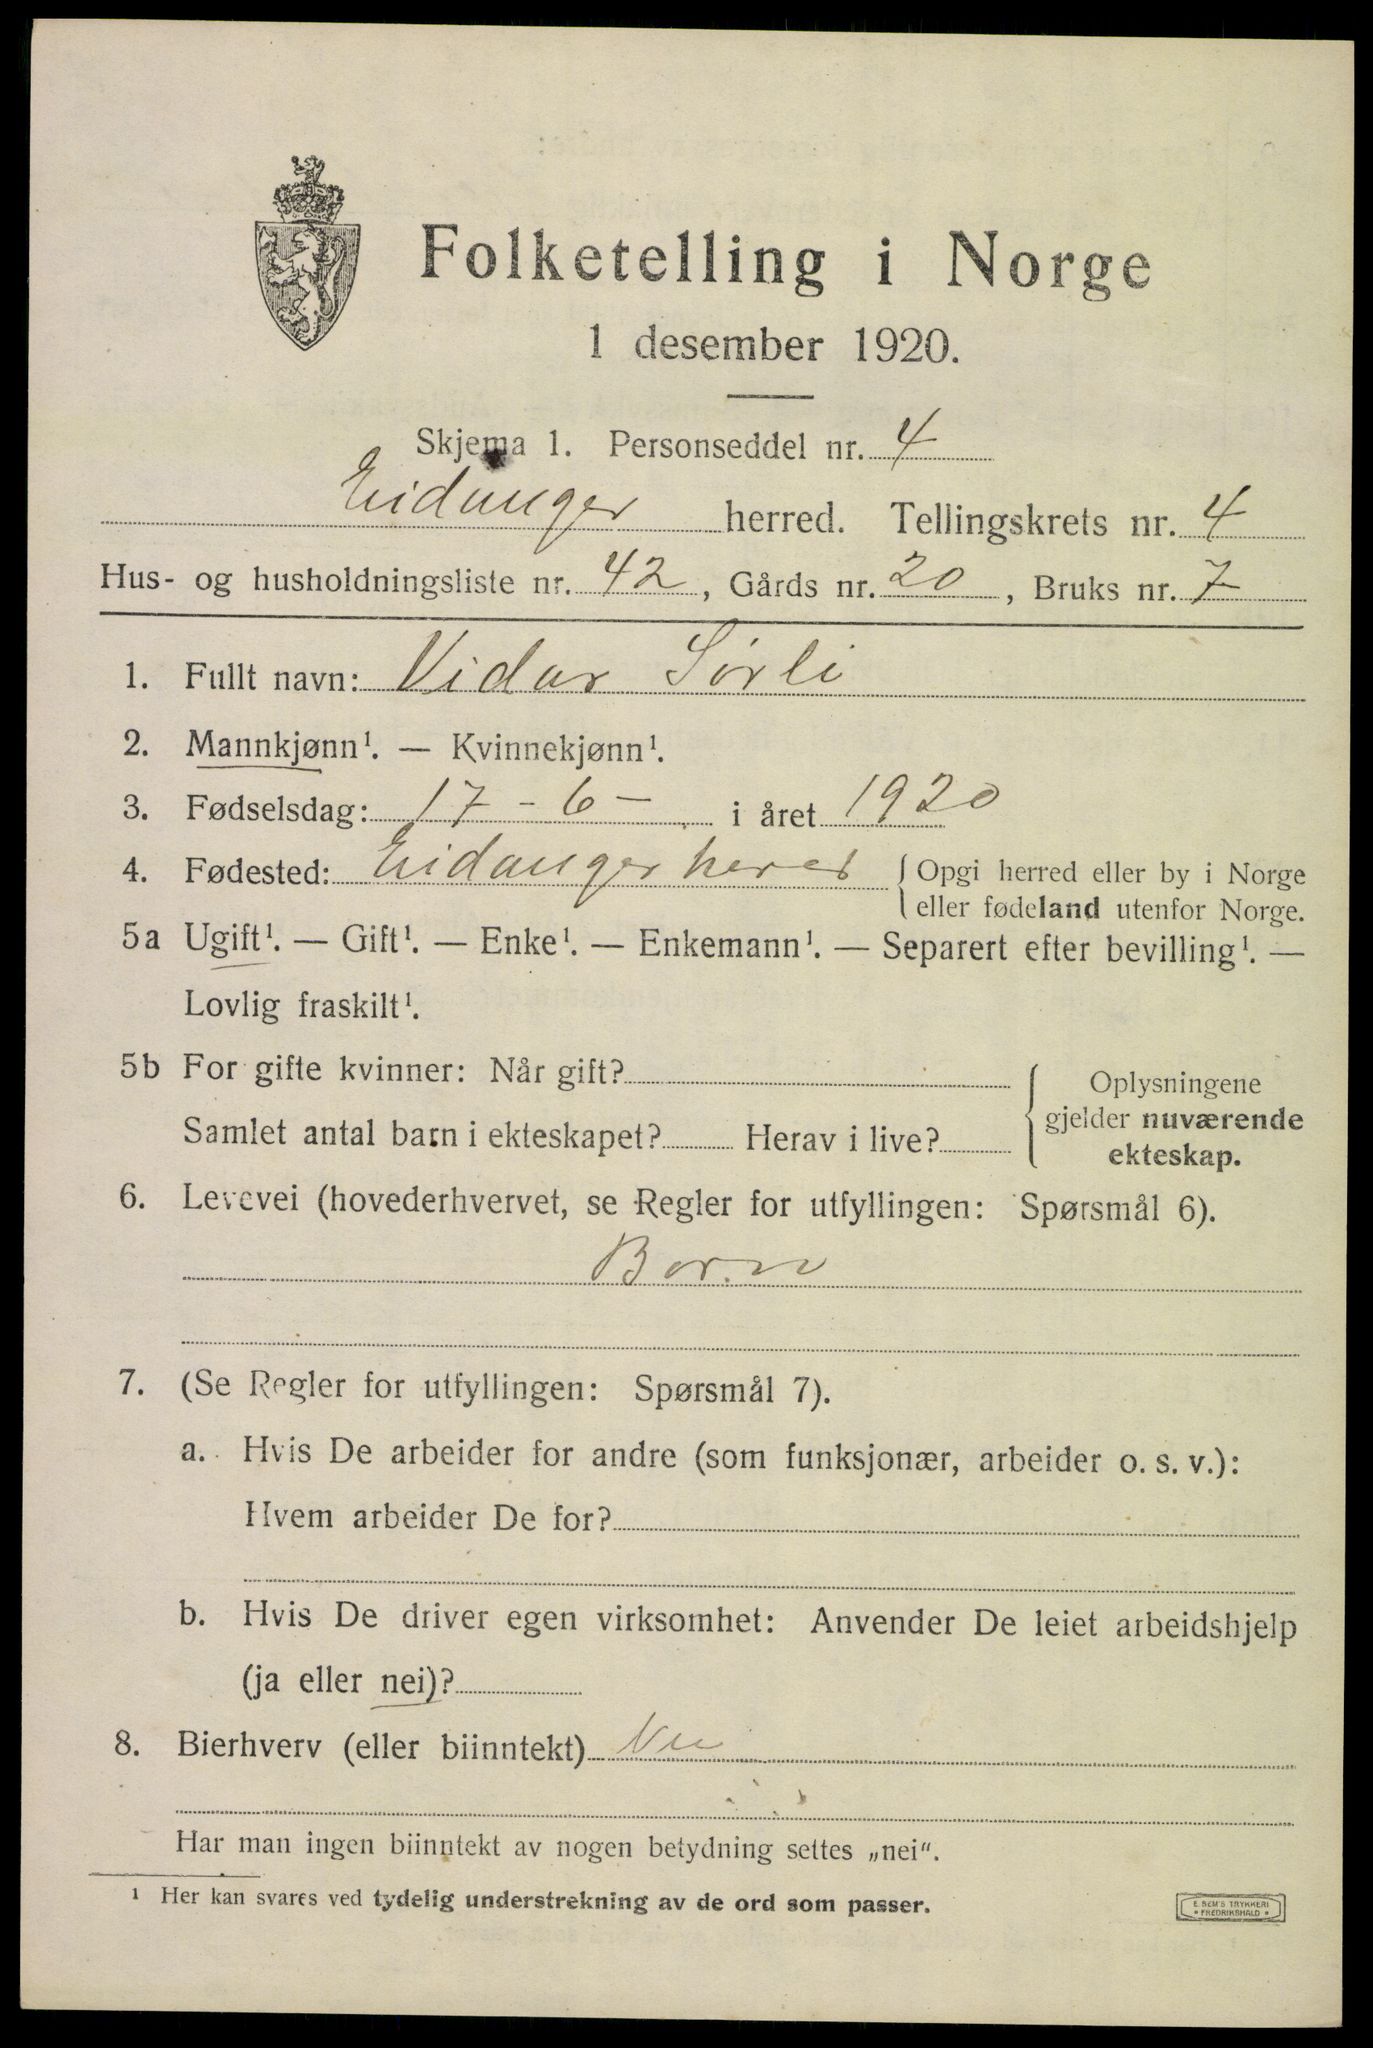 Folketelling i Norge
1 desember 1920.
Skjema 1. Personseddel nr. 4
Eidanger herred. Tellingskrets nr. 4
Hus- og husholdningsliste nr. 42, Gårds nr. 20, Bruks nr. 7
1. Fullt navn: Vidar Sörli
2. Mannkjønn¹. — Kvinnekjønn¹.
3. Fødselsdag: 17 - 6 - i året 1920
4. Fødested: Eidanger herred { Opgi herred eller by i Norge
eller fødeland utenfor Norge.
5a Ugift¹. — Gift¹. — Enke¹. — Enkemann¹. — Separert efter bevilling¹. —
Lovlig fraskilt¹.
5b For gifte kvinner: Når gift?
Samlet antal barn i ekteskapet? Herav i live?
Oplysningene
gjelder nuværende
ekteskap.
6. Levevei (hovederhvervet, se Regler for utfyllingen: Spørsmål 6).
Barn
7. (Se Regler for utfyllingen: Spørsmål 7).
a. Hvis De arbeider for andre (som funksjonær, arbeider o. s. v.):
Hvem arbeider De for?
b. Hvis De driver egen virksomhet: Anvender De leiet arbeidshjelp
(ja eller nei)?
8. Bierhverv (eller biinntekt) Nei
Har man ingen biinntekt av nogen betydning settes „nei".
¹ Her kan svares ved tydelig understrekning av de ord som passer.
E. SEM'S TRYKKERI
• FREDRIKSHALD •